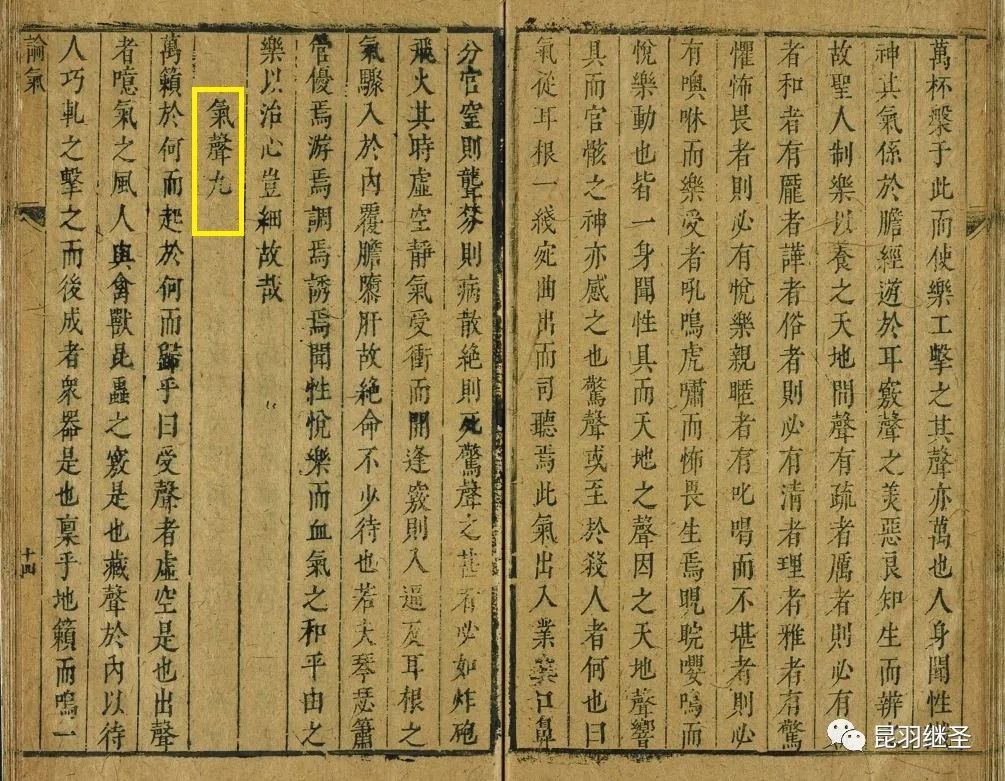 萬杯槃于此而使樂工擊之其聲亦萬也人身聞性
神其氣係於膽經遊於耳竅聲之美惡良知生而辨
故聖人制樂以養之天地間聲有疏者厲者則必有
者和者有厖者譁者俗者則必有清者理者雅者有驚
懼怖畏者則必有悅樂親暱者有叱喝而不堪者則必
有噢咻而樂受者吼鳴虎嘯而怖畏生焉睍睆嚶鳴而
悅樂動也皆一身聞性具而天地之聲因之天地聲響
具而官骸之神亦感之也驚聲或至於殺人者何也曰
氣從耳根一綫宛曲出而司聽焉此氣出入業業口鼻
分官窒則聾棼則病散絕則死驚聲之甚者必如炸砲
飛火其時虛空靜氣受衝而開逢竅則入逼及耳根之
氣驟入於內覆膽隳肝故絕命不少待也若夫琴瑟簫
管優焉游焉調焉誘焉聞性悅樂而血氣之和平由之
樂以治心豈細故哉
氣聲九
萬籟於何而起於何而歸乎曰受聲者虛空是也出聲
者噫氣之風人與禽獸昆蟲之竅是也藏聲於內以待
人巧軋之擊之而後成者衆器是也稟乎地籟而鳴一
論氣
十四
昆羽继圣